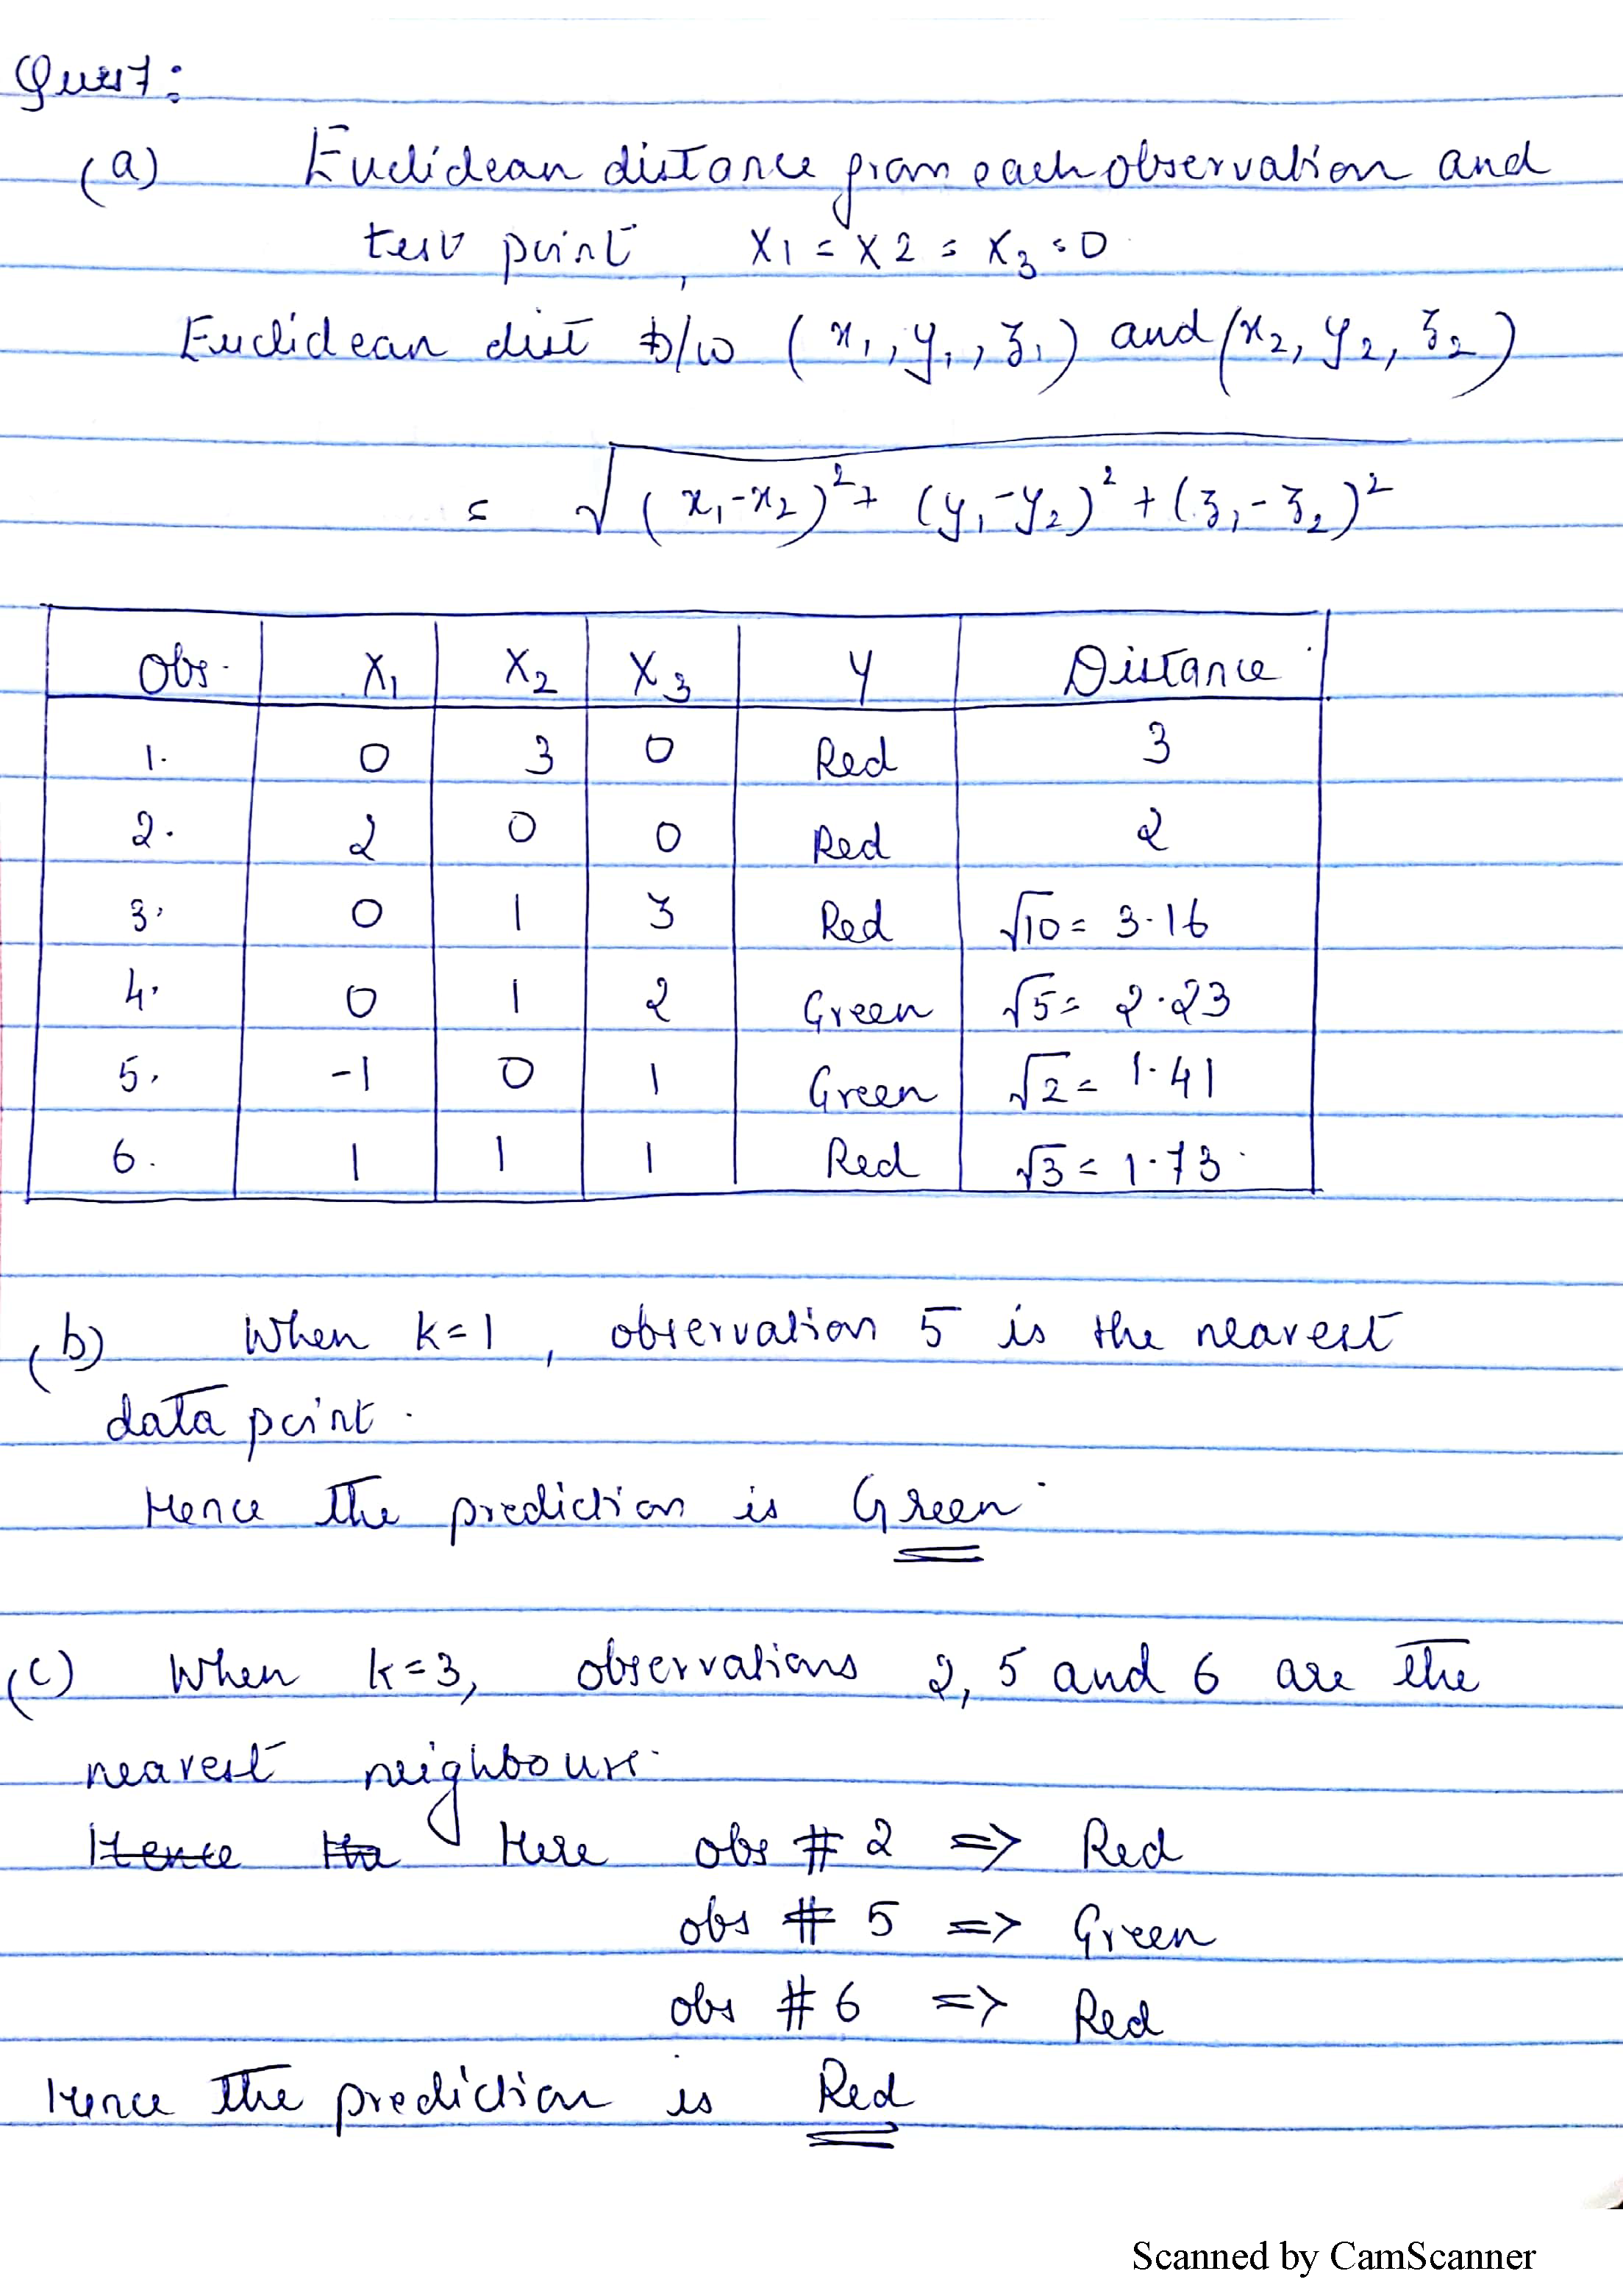 Ques 7:
(a) Euclidean distance from each observation and
test point, X1 = X2 = X3 = 0
Euclidean dist b/w (x1, y1, z1) and (x2, y2, z2)
= √(x1-x2)² + (y1-y2)² + (z1-z2)²
Obs. X1 X2 X3 Y Distance
1. 0 3 0 Red 3
2. 2 0 0 Red 2
3. 0 1 3 Red √10 = 3.16
4. 0 1 2 Green √5 = 2.23
5. -1 0 1 Green √2 = 1.41
6. 1 1 1 Red √3 = 1.73
(b) When k=1, observation 5 is the nearest
data point.
Hence the prediction is Green.
(c) When k=3, observations 2, 5 and 6 are the
nearest neighbours.
Hence Here obs # 2 => Red
obs # 5 => Green
obs # 6 => Red
Hence the prediction is Red
Scanned by CamScanner